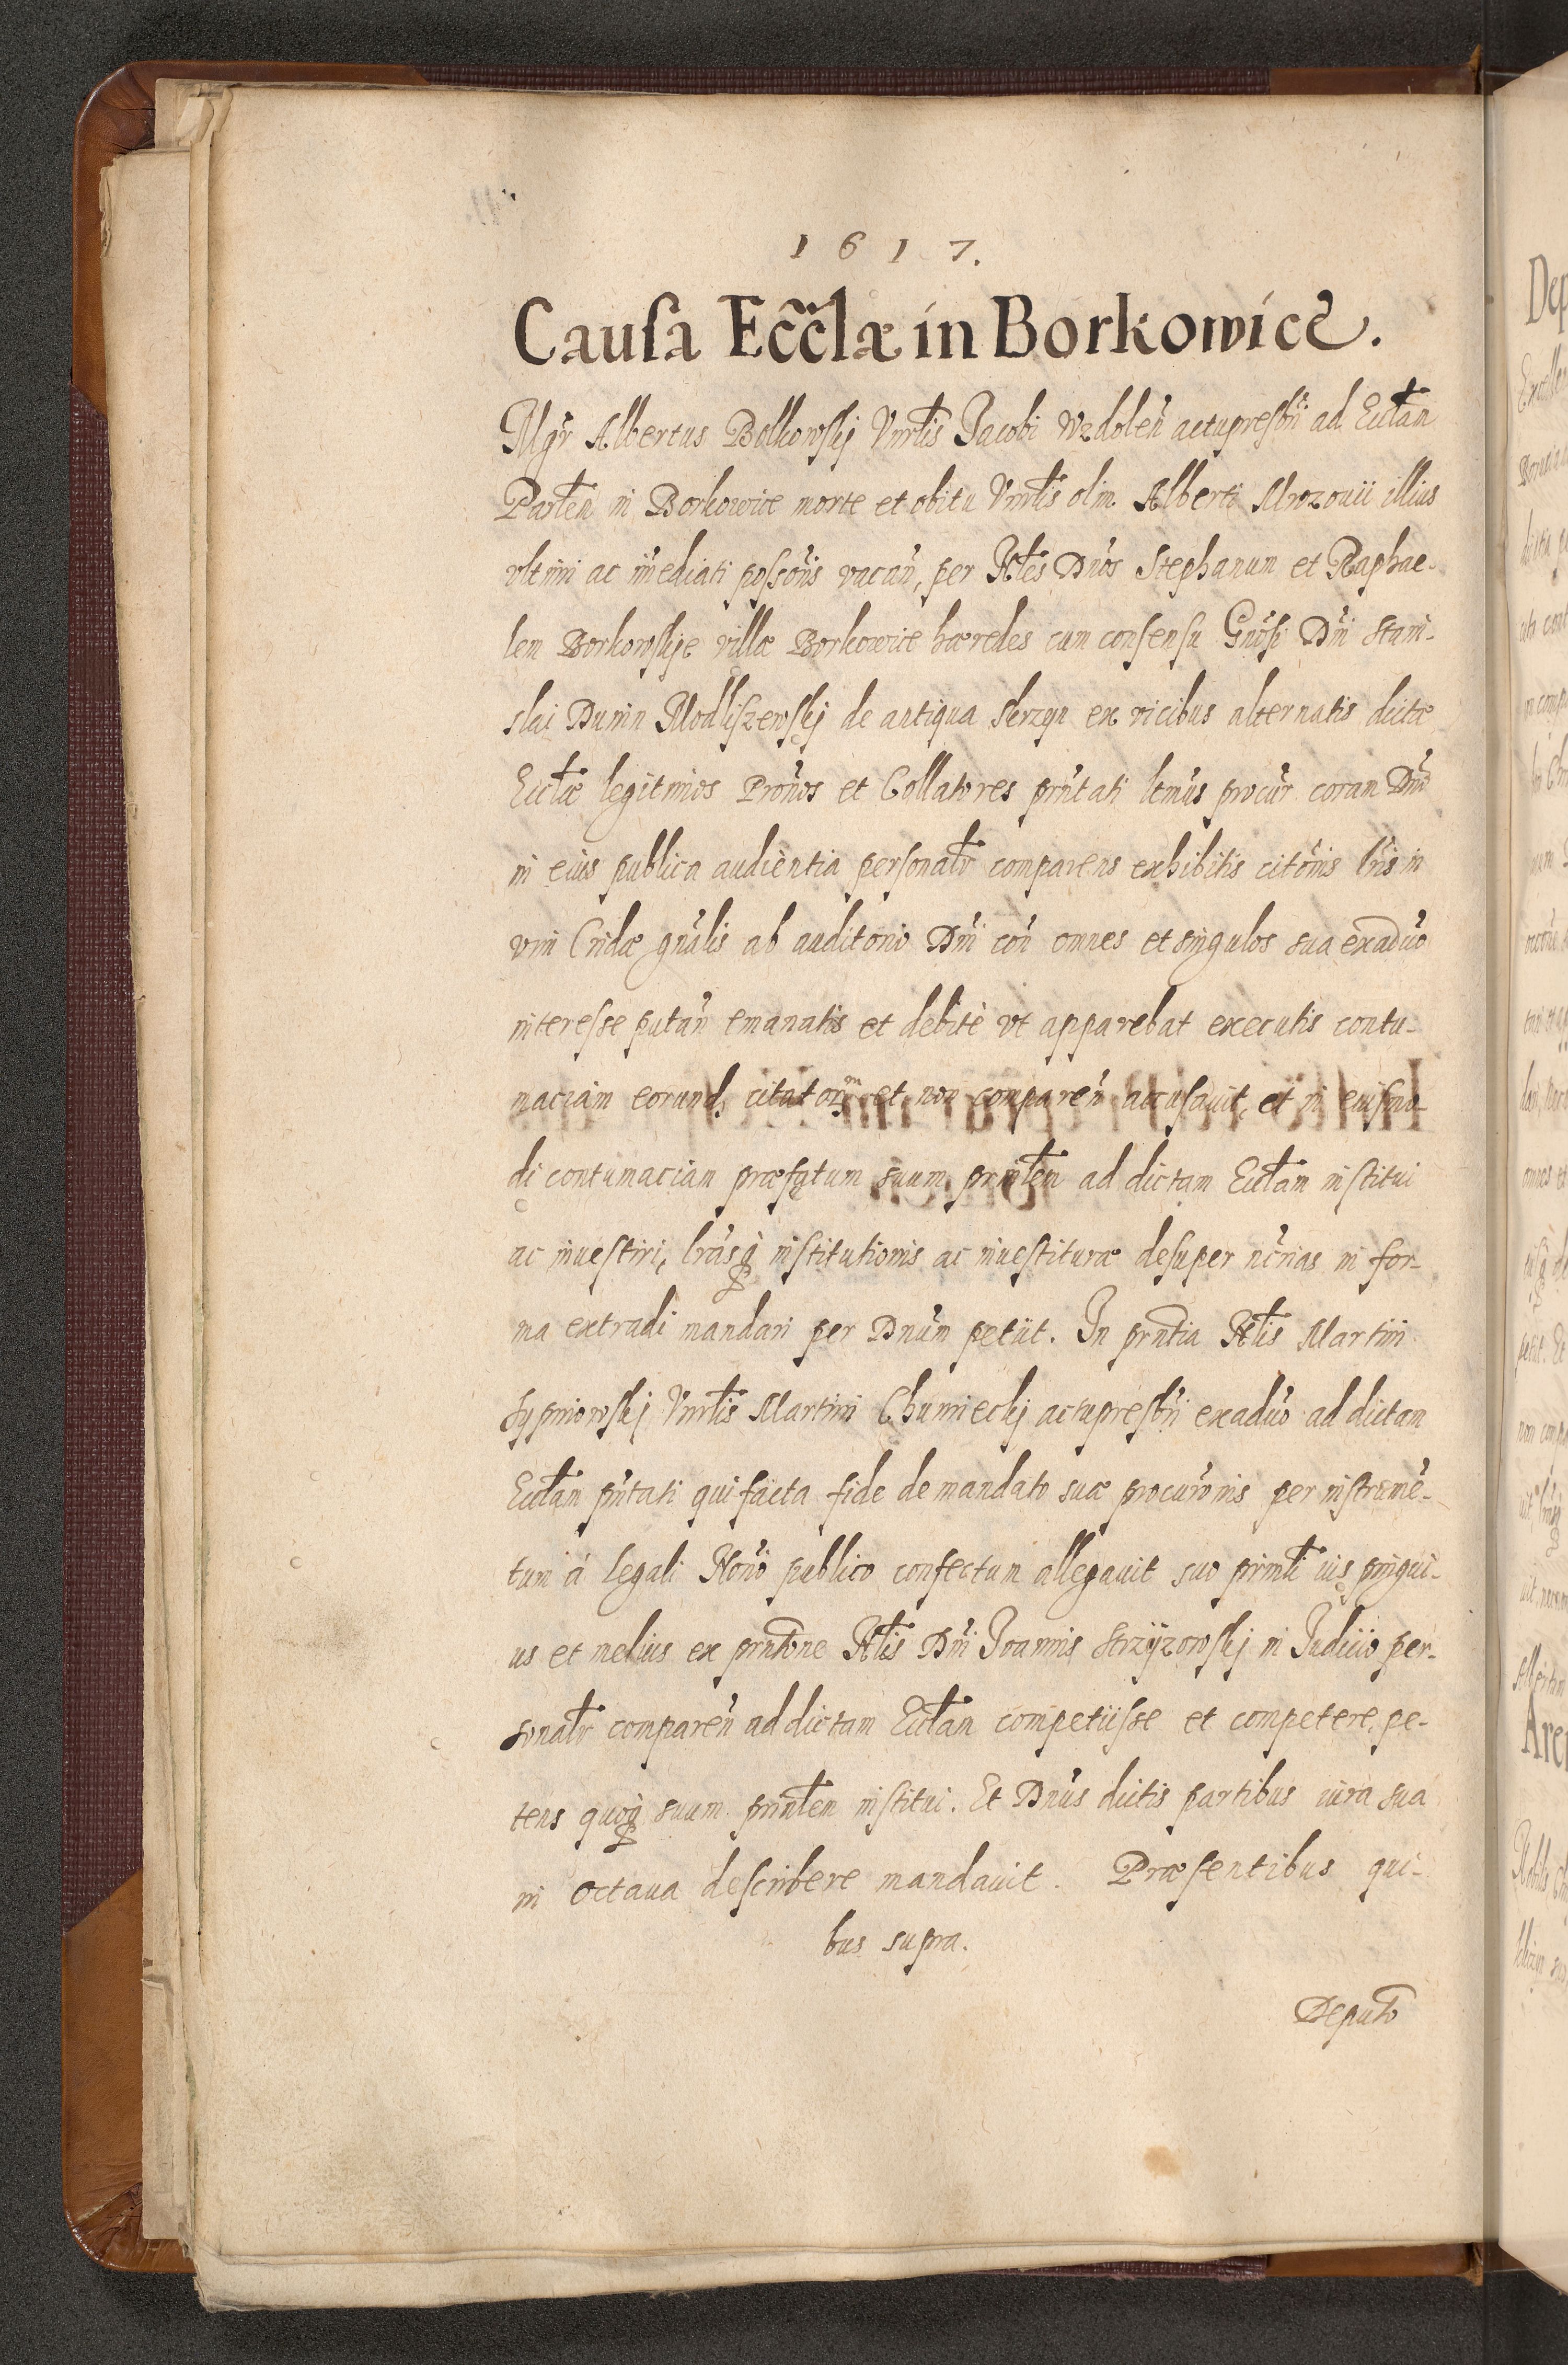 1617.
Causa Ecc̃læ in Borkowicẽ.
Mgr̃ Albertus Bolkowskj Vnrłis Jacobi Wzdoleñ actupresbr̃i ad Eccłam
Parłem in Borkowice morte et obitu Vnrłis olim Alberti Mrozouii illius
vltimi ac im̃ediati possoris̃ vacañ, per Nłes Dños Stephanum et Raphae-
lem Borkowskie villæ Borkowice hæredes cum consensu Gnõsi Dñi Stani-
slai Dunin Modliszewskj de antiqua Skrzyn ex vicibus alternatis dictæ
Eccłæ legitimos Prõnos et Collatores prñtati ltimũs procũr coram Dñõ
in eius publica audientia personałr comparens exhibitis citõnis lr̃is in
vim Cridæ gñalis ab auditorio Dñi coñ omnes et singulos sua exaduõ
interesse putañ emanatis et debitè vt apparebat executis contu-
maciam eorund, citatorṃ et non compareñ accusauit, et in eiusmo-
di contumaciam præfatum suum prinłem ad dictam Eccłam institui
ac inuestiri, lr̃asq̃ institutionis ac inuestituræ desuper nc̃rias in for-
ma extradi mandari per Dñum petiit. In prñtia Nłis Martini
Sypniowskj Vnrłis Martini Chumieckj actupresbr̃i exaduõ ad dictam
Eccłam pñtati qui facta fide de mandato suæ procurõnis per instrumẽ-
tum á legali Norĩo publico confectum allegauit suo prinłi ius pingui-
us et melius ex prñtõne Nłis Dñi Joannis Strzyżowskj in Judicio per-
sonałr compareñ ad dictam Eccłam competiisse et competere, pe-
tens quoq̃ suum prinłem institui. Et Dñus dictis partibus iura sua
in octaua describere mandauit. Præsentibus qui-
bus supra.
Deputõ